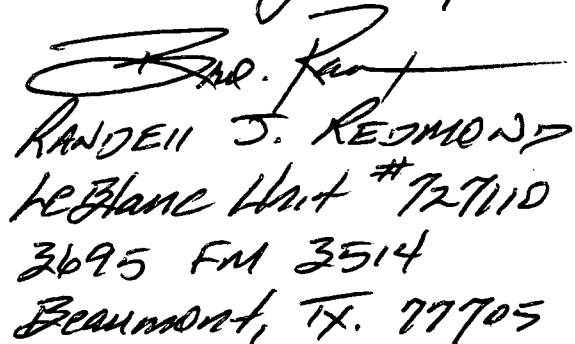 RANDELL J. REDMOND
LeBlanc Unit #727110
3695 FM 3514
Beaumont, TX. 77705